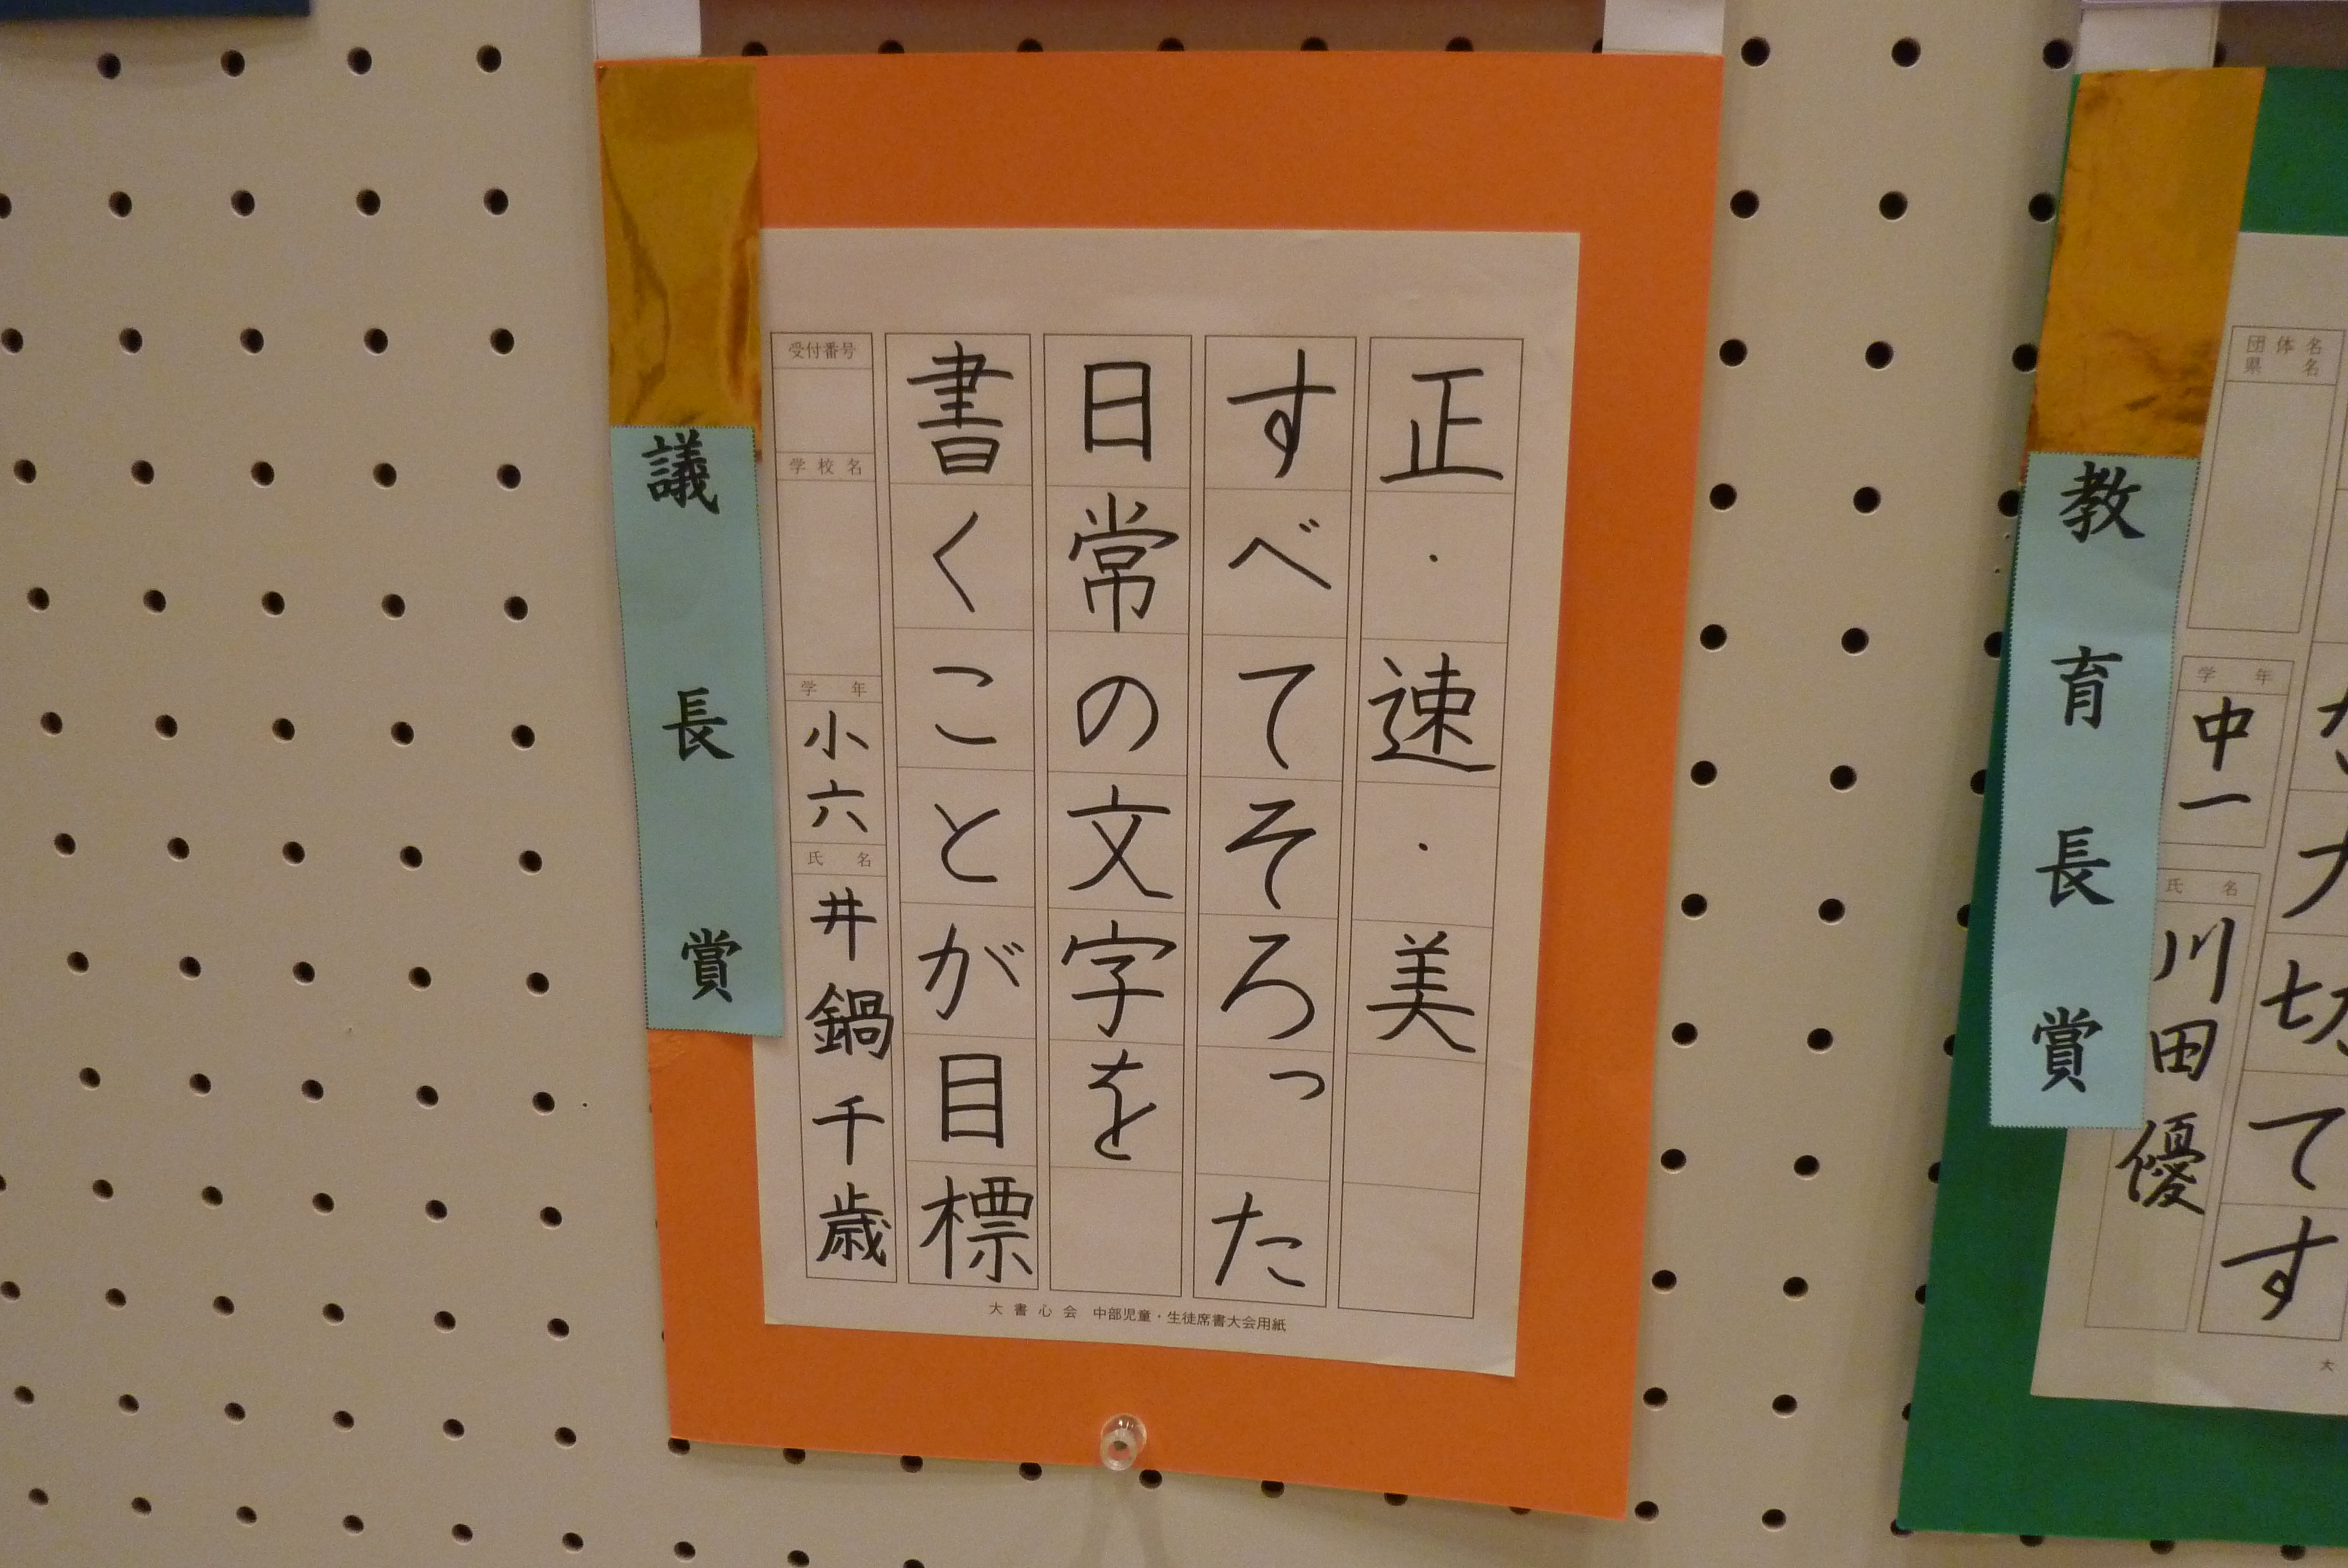 正・速・美
すべてそろった
日常の文字を
書くことが目標
受付番号
学校名
学年
小六
氏名
井鍋千歳
議長賞
大書心会 中部児童・生徒席書大会用紙
切てす
団体名
県名
学年
中一
氏名
川田優
教育長賞
大